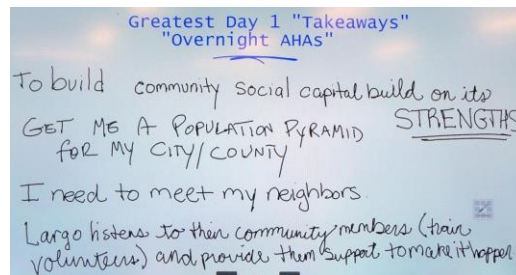 Greatest Day 1 "Takeaways"
"Overnight AHAs"
To build community social capital build on its
STRENGTHS
GET ME A POPULATION PYRAMID
FOR MY CITY/COUNTY
I need to meet my neighbors.
Largo listens to their community members (train
volunteers) and provide them support to make it happen